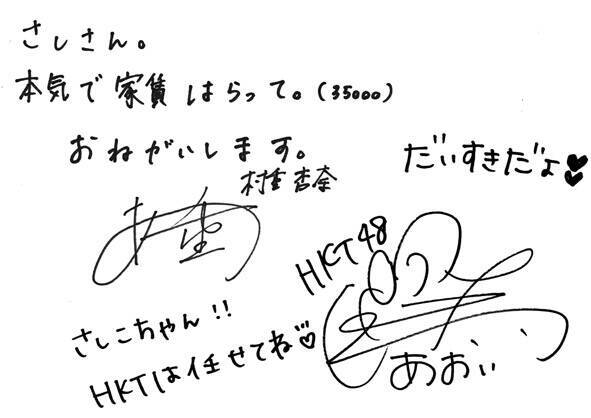 さしさん。
本気で家賃はらって。(35000)
おねがいします。
村重杏奈
だいすきだょ♥♥
HKT48
さしこちゃん!!
HKTは任せてね♡
あおいぃ